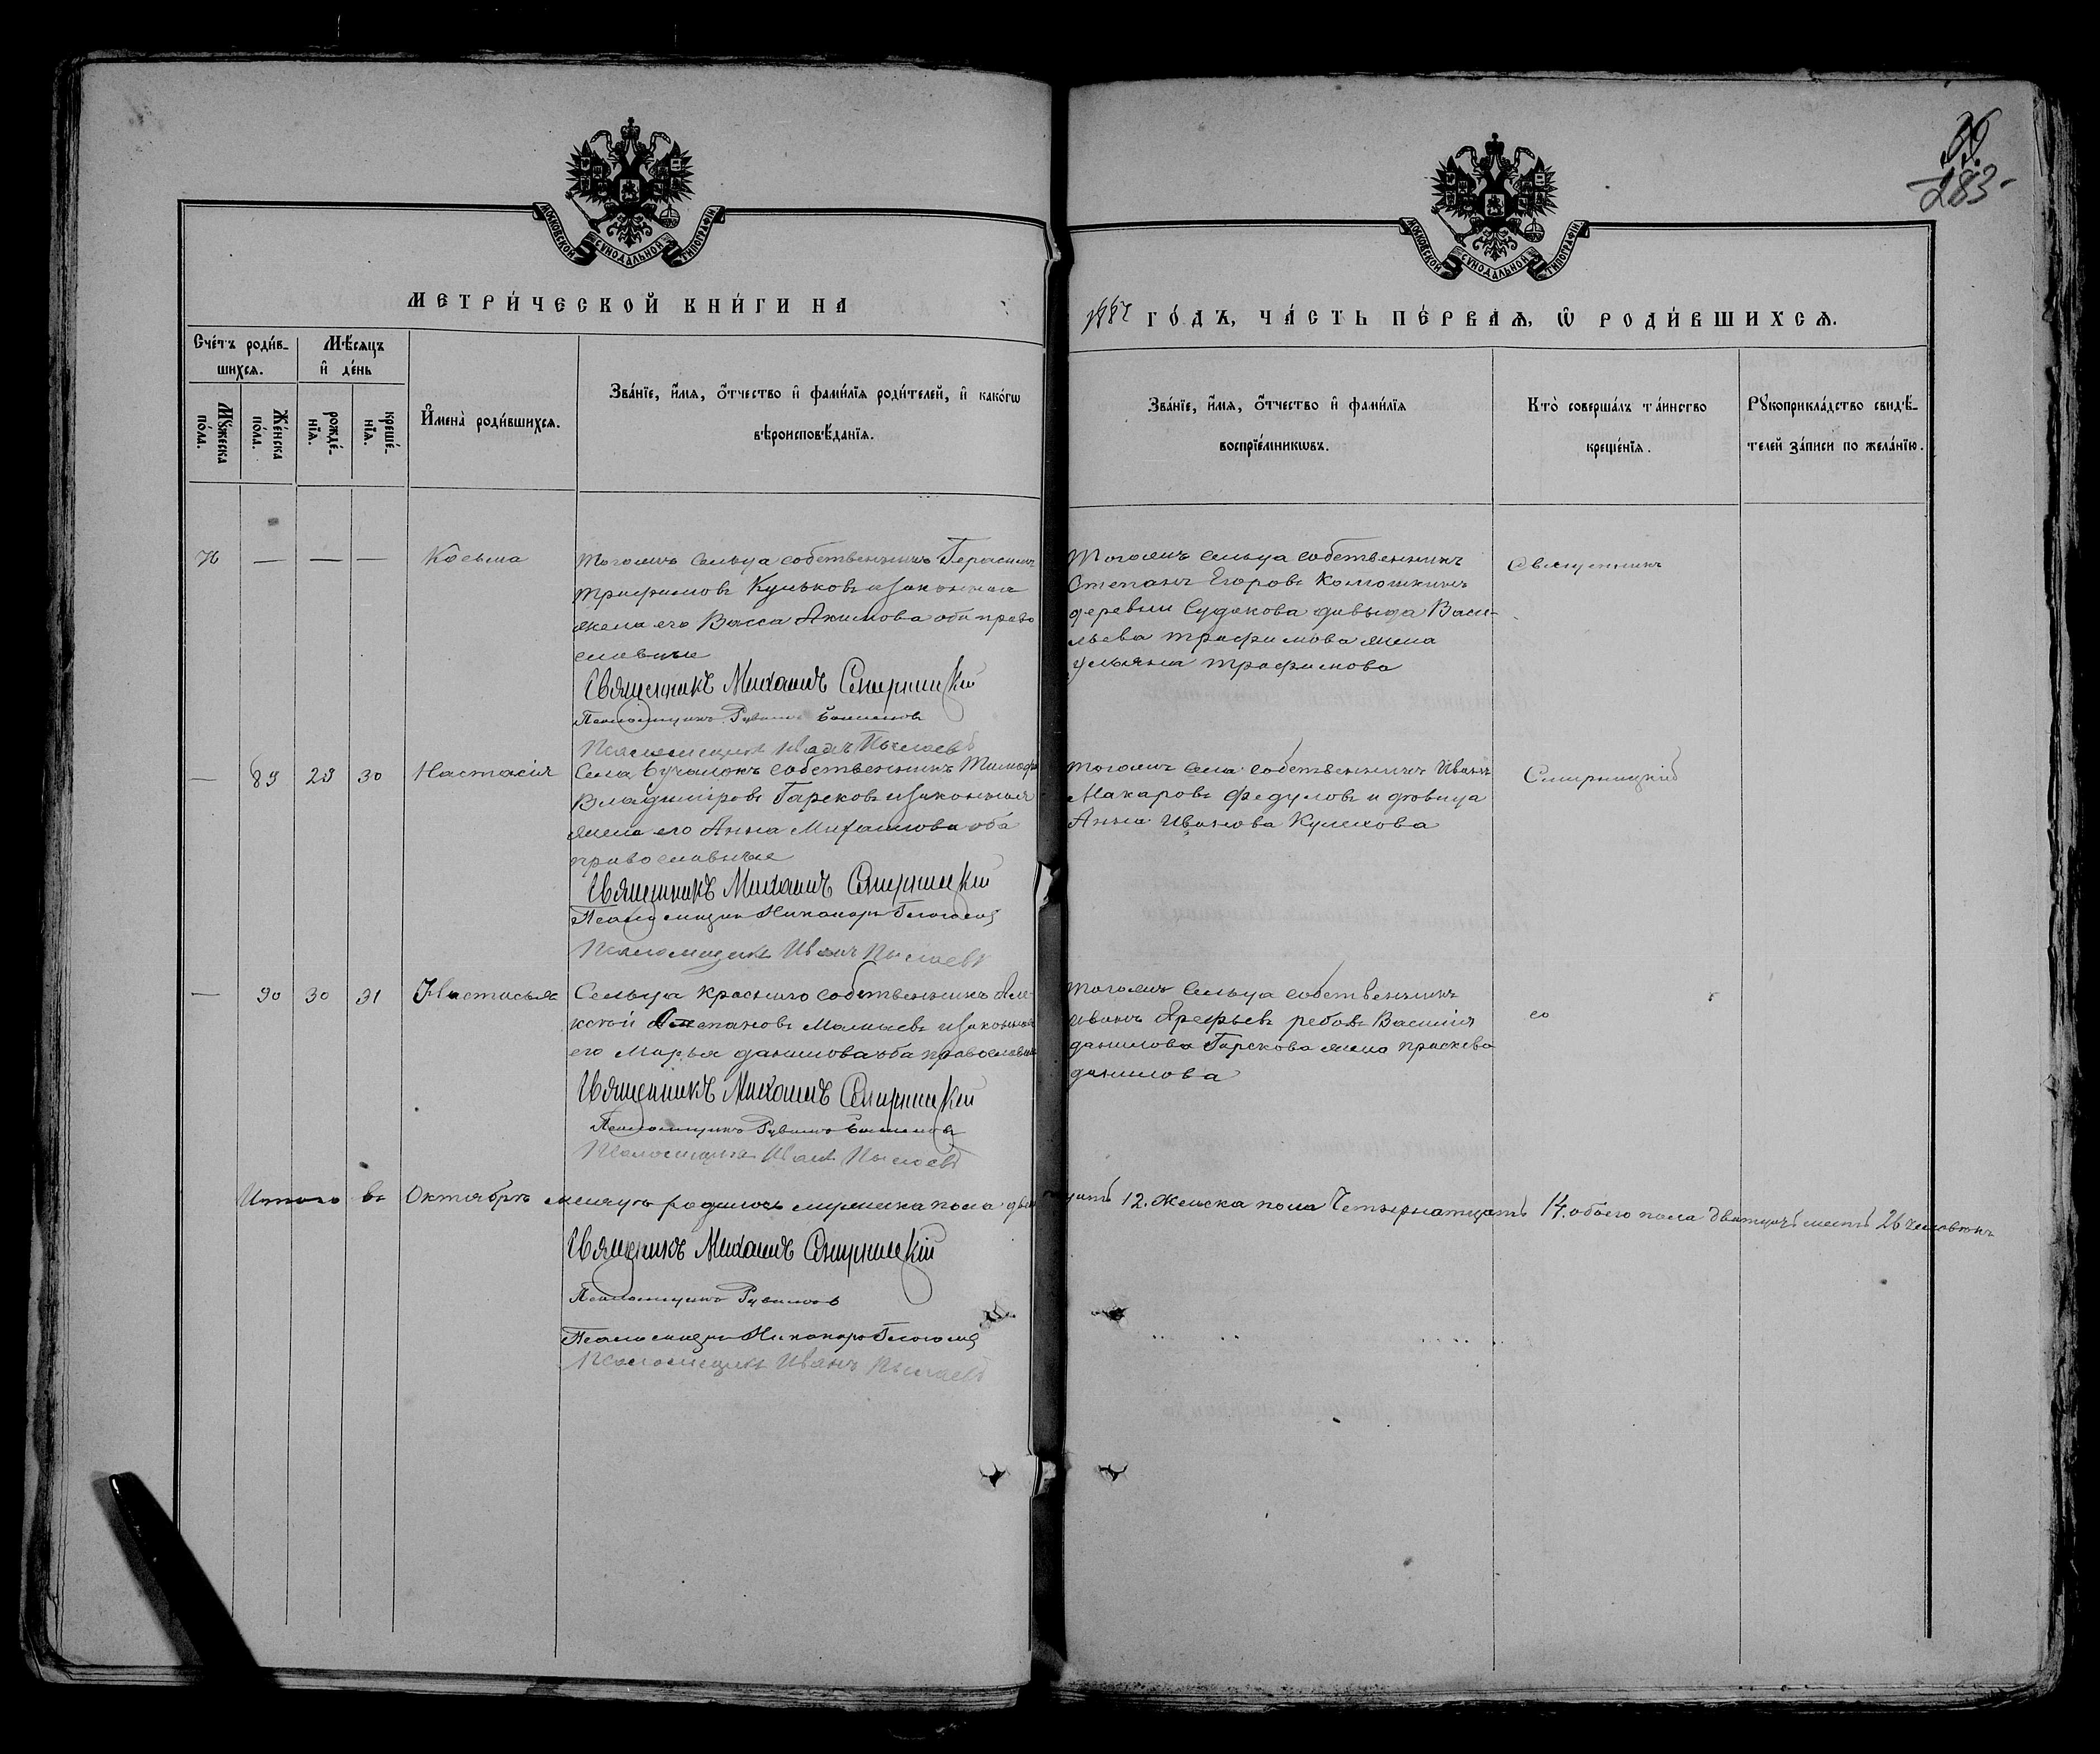 283
МОСКОВСКОЙ СѴНОДАЛЬНОЙ ТИПОГРАФІИ
МОСКОВСКОЙ СѴНОДАЛЬНОЙ ТИПОГРАФІИ
МЕТРИ́ЧЕСКОЙ КНИ́ГИ НА
ГО́ДЪ, ЧА́СТЬ ПЕ́РВАѦ, Ѡ҆ РОДИ́ВШИХСѦ.
Сче́тъ роди́в-
шихсѧ.
Мѣ́сѧцъ
и҆ де́нь
Мꙋ́жеска
по́ла.
Же́нска
по́ла.
рожде́-
нїѧ.
креще́-
нїѧ.
И҆мена̀ роди́вшихсѧ.
Зва́нїе, и҆́мѧ, о҆́тчество и҆ фами́лїѧ роди́телей, и҆ како́гѡ
вѣроисповѣ́данїѧ.
Зва́нїе, и҆́мѧ, о҆́тчество и҆ фами́лїѧ
воспрїе́мникѡвъ.
Кто̀ соверша́лъ та́инство
креще́нїѧ.
Рꙋкоприкла́дство свидѣ́-
телей за́писи по жела́нїю.
76 — — — Косьма
Тогожъ сельца собственникъ Герасимъ
Трафимовъ Кульковъ и законная
жена его Васса Акимова оба право
славные
Священникъ Михаилъ Смирницкій
Псаломщикъ Иванъ Пылаевъ
Тогожъ сельца собственникъ
Степанъ Егоровъ Колюшкинъ
деревни Судакова давыда Васи-
льева трафимова жена
ульяна трафимова
Священникъ
— 89 29 30 Настасія
Села Бучалокъ собственникъ Тимофей
Владиміровъ Гарсковъ и законная
жена его Анна Михаилова оба
православные
Священникъ Михаилъ Смирницкій
Псаломщикъ Никаноръ
Псаломщикъ Иванъ Пылаевъ
Тогожъ села собственникъ Иванъ
Макаровъ Федуловъ и девица
Анна Иванова Кулехова
Смирницкій
— 90 30 31 Настасья
Сельца краснаго собственникъ Але
ксѣй Степановъ Мамаевъ и законная
его Марья данилова оба православные
Священникъ Михаилъ Смирницкій
Псаломщикъ Иванъ Пылаевъ
Тогожъ сельца собственникъ
иванъ Арефьевъ ребовъ Василія
данилова Гарскова жена праскева
данилова
Итого въ Октябрѣ месяцѣ родилось мужеска пола двенадцать 12. Женска пола Четырнатцать 14. обоего пола Двадцать шесть 26 человѣкъ
Священникъ Михаилъ Смирницкій
Псаломщикъ
Псаломщикъ Никаноръ
Псаломщикъ Иванъ Пылаевъ